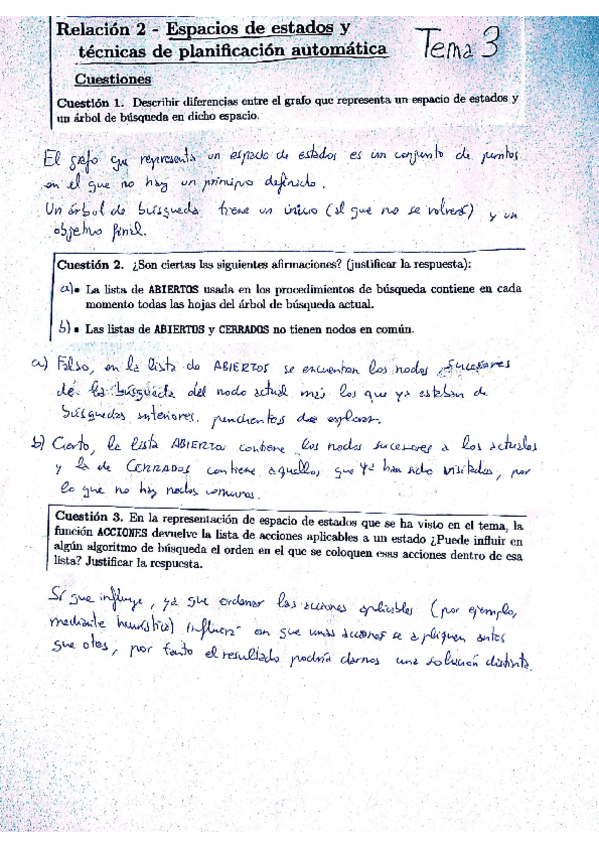 Relación 2 - Espacios de estados y
técnicas de planificación automática
Tema 3
Cuestiones
Cuestión 1. Describir diferencias entre el grafo que representa un espacio de estados y
un árbol de búsqueda en dicho espacio.
El grafo que representa un espacio de estados es un conjunto de puntos
en el que no hay un principio definido.
Un árbol de búsqueda tiene un inicio (al que no se volverá) y un
objetivo final.
Cuestión 2. ¿Son ciertas las siguientes afirmaciones? (justificar la respuesta):
a) • La lista de ABIERTOS usada en los procedimientos de búsqueda contiene en cada
momento todas las hojas del árbol de búsqueda actual.
b) • Las listas de ABIERTOS y CERRADOS no tienen nodos en común.
a) Falso, en la lista de ABIERTOS se encuentran los nodos sucesores
de la búsqueda del nodo actual más los que ya estaban de
búsquedas anteriores, pendientes de explorar.
b) Cierto, la lista ABIERTA contiene los nodos sucesores a los actuales
y la de CERRADOS contiene aquellos que ya han sido visitados, por
lo que no hay nodos comunes.
Cuestión 3. En la representación de espacio de estados que se ha visto en el tema, la
función ACCIONES devuelve la lista de acciones aplicables a un estado ¿Puede influir en
algún algoritmo de búsqueda el orden en el que se coloquen esas acciones dentro de esa
lista? Justificar la respuesta.
Sí que influye, ya que ordenar las acciones aplicables (por ejemplo,
mediante heurística) influirá en que unas acciones se apliquen antes
que otras, por tanto el resultado podría darnos una solución distinta.